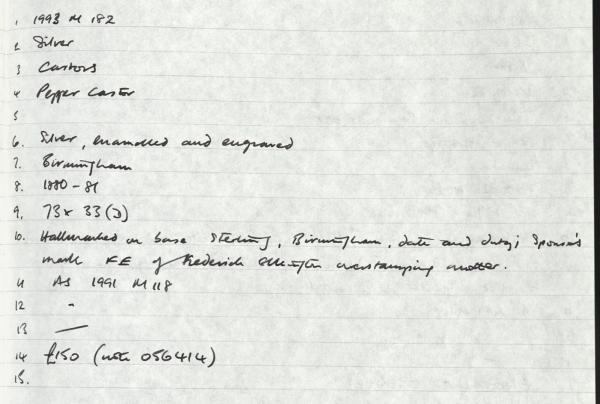 1 1993 M 182
2 Silver
3 Castors
4 Pepper Castor
5
6. Silver, enamelled and engraved
7. Birmingham
8. 1880-81
9. 73 x 33 (D)
10. Hallmarked on base Sterling, Birmingham, date and duty; Sponsor's
mark FE of Frederick Elkington overstamping another.
11 AS 1991 M 118
12 "
13 —
14 £150 (note 056414)
15.